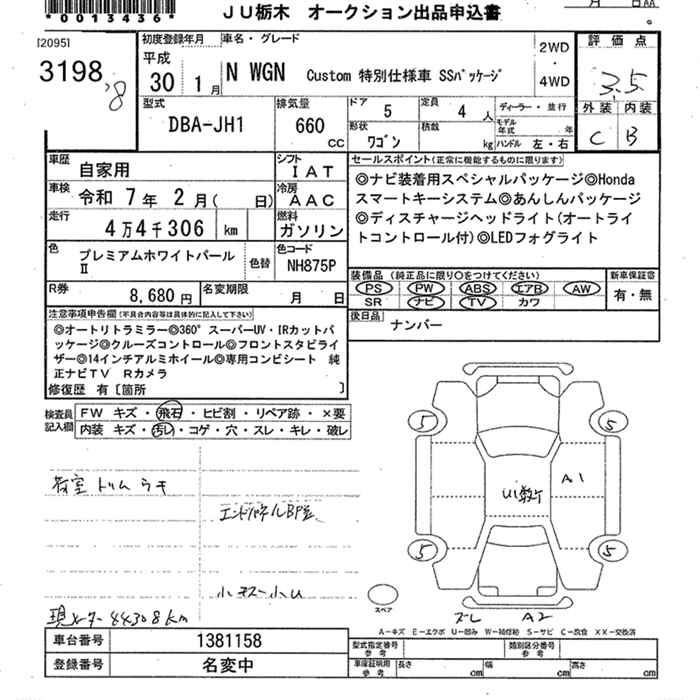 *0013436*
JU栃木 オークション出品申込書
月 日AA
[2095]
3198
'8
初度登録年月
平成
30 1月
車名・グレード
N WGN Custom 特別仕様車 SSパッケージ
2WD
・
4WD
評価点
3.5
外装 内装
C B
型式
DBA-JH1
排気量
660 cc
ドア 5
定員 4 人
形状 ワゴン
積載 kg
ディーラー・並行
モデル年式 年
ハンドル 左・右
車歴 自家用
シフト IAT
車検 令和 7年 2月( 日)
冷房 AAC
走行 4万4千306 km
燃料 ガソリン
色 プレミアムホワイトパールⅡ
色替
色コード NH875P
R券 8,680円
名変期限 月 日
セールスポイント(正常に機能するものに限ります)
◎ナビ装着用スペシャルパッケージ◎Honda
スマートキーシステム◎あんしんパッケージ
◎ディスチャージヘッドライト(オートライ
トコントロール付)◎LEDフォグライト
装備品(純正品に限り○をつけてください)
PS PW ABS エアB AW
SR ナビ TV カワ
新車保証書
有・無
後日品 ナンバー
注意事項申告欄(不具合内容等は具体的に記入して下さい)
◎オートリトラミラー◎360°スーパーUV・IRカットパ
ッケージ◎クルーズコントロール◎フロントスタビライ
ザー◎14インチアルミホイール◎専用コンビシート 純
正ナビTV Rカメラ
修復歴 有〔箇所 〕
検査員記入欄
FW キズ・飛石・ヒビ割・リペア跡・×要
内装 キズ・汚レ・コゲ・穴・スレ・キレ・破レ
トリム
現メーター 44308km
5 5
A1
5 5
スペア
A2
A-キズ E-エクボ U-凹み W-補修跡 S-サビ C-腐食 XX-交換済
車台番号 1381158
登録番号 名変中
型式指定番号 参考
類別区分番号 参考
車庫証明用 参考
長さ cm
幅 cm
高さ cm